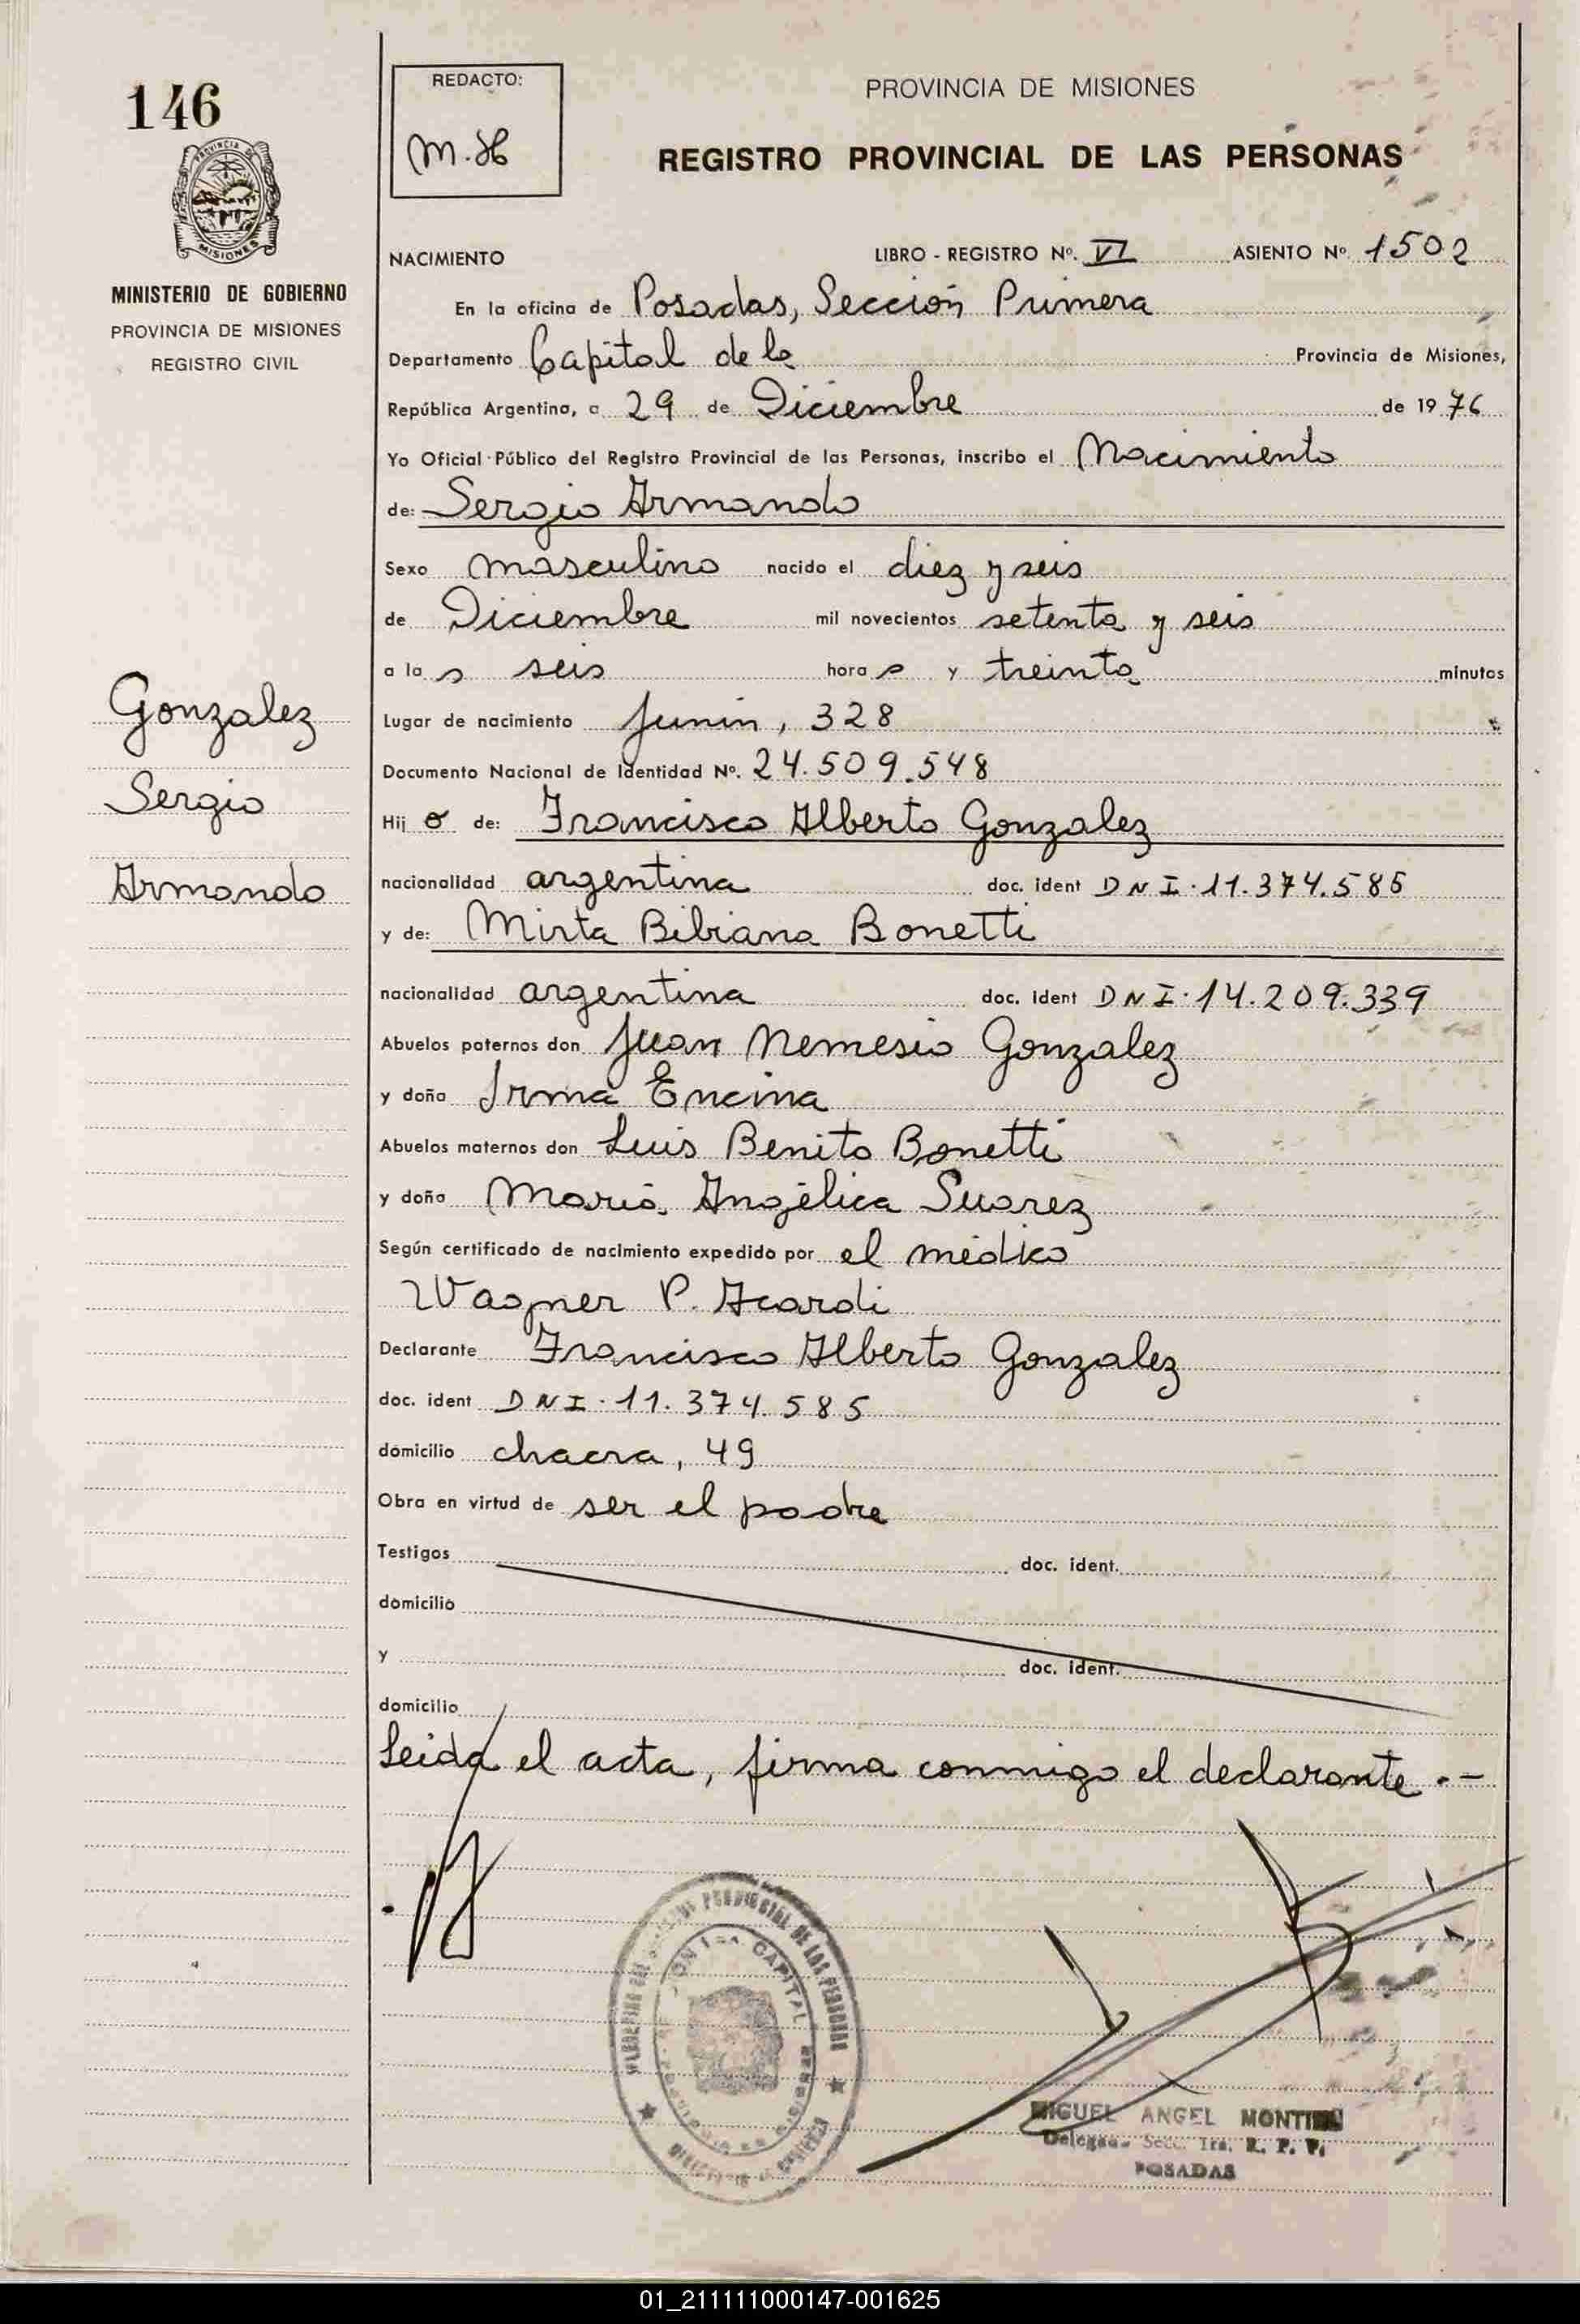 146
REDACTO:
M.H
PROVINCIA DE MISIONES
REGISTRO PROVINCIAL DE LAS PERSONAS
PROVINCIA DE
MISIONES
MINISTERIO DE GOBIERNO
PROVINCIA DE MISIONES
REGISTRO CIVIL
NACIMIENTO LIBRO - REGISTRO Nº. VI ASIENTO Nº 1502
En la oficina de Posadas, Sección Primera
Departamento Capital de la Provincia de Misiones,
República Argentina, a 29 de Diciembre de 1976
Yo Oficial Público del Registro Provincial de las Personas, inscribo el Nacimiento
de: Sergio Armando
Sexo masculino nacido el diez y seis
de Diciembre mil novecientos setenta y seis
a las seis horas y treinta minutos
Gonzalez
Sergio
Armando
Lugar de nacimiento Junin, 328
Documento Nacional de Identidad Nº. 24.509.548
Hijo de: Francisco Alberto Gonzalez
nacionalidad argentina doc. ident DNI. 11.374.585
y de: Mirta Bibiana Bonetti
nacionalidad argentina doc. ident DNI. 14.209.339
Abuelos paternos don Juan Nemesio Gonzalez
y doña Irma Encina
Abuelos maternos don Luis Benito Bonetti
y doña María Angélica Suarez
Según certificado de nacimiento expedido por el médico
Wagner P. Acardi
Declarante Francisco Alberto Gonzalez
doc. ident DNI. 11.374.585
domicilio chacra, 49
Obra en virtud de ser el padre
Testigos doc. ident.
domicilio
y doc. ident.
domicilio
Leida el acta, firma conmigo el declarante.-
PROVINCIAL DE LAS PERSONAS
CAPITAL
MIGUEL ANGEL MONTIEL
Secc. 1ra. R. P. P.
POSADAS
01_211111000147-001625